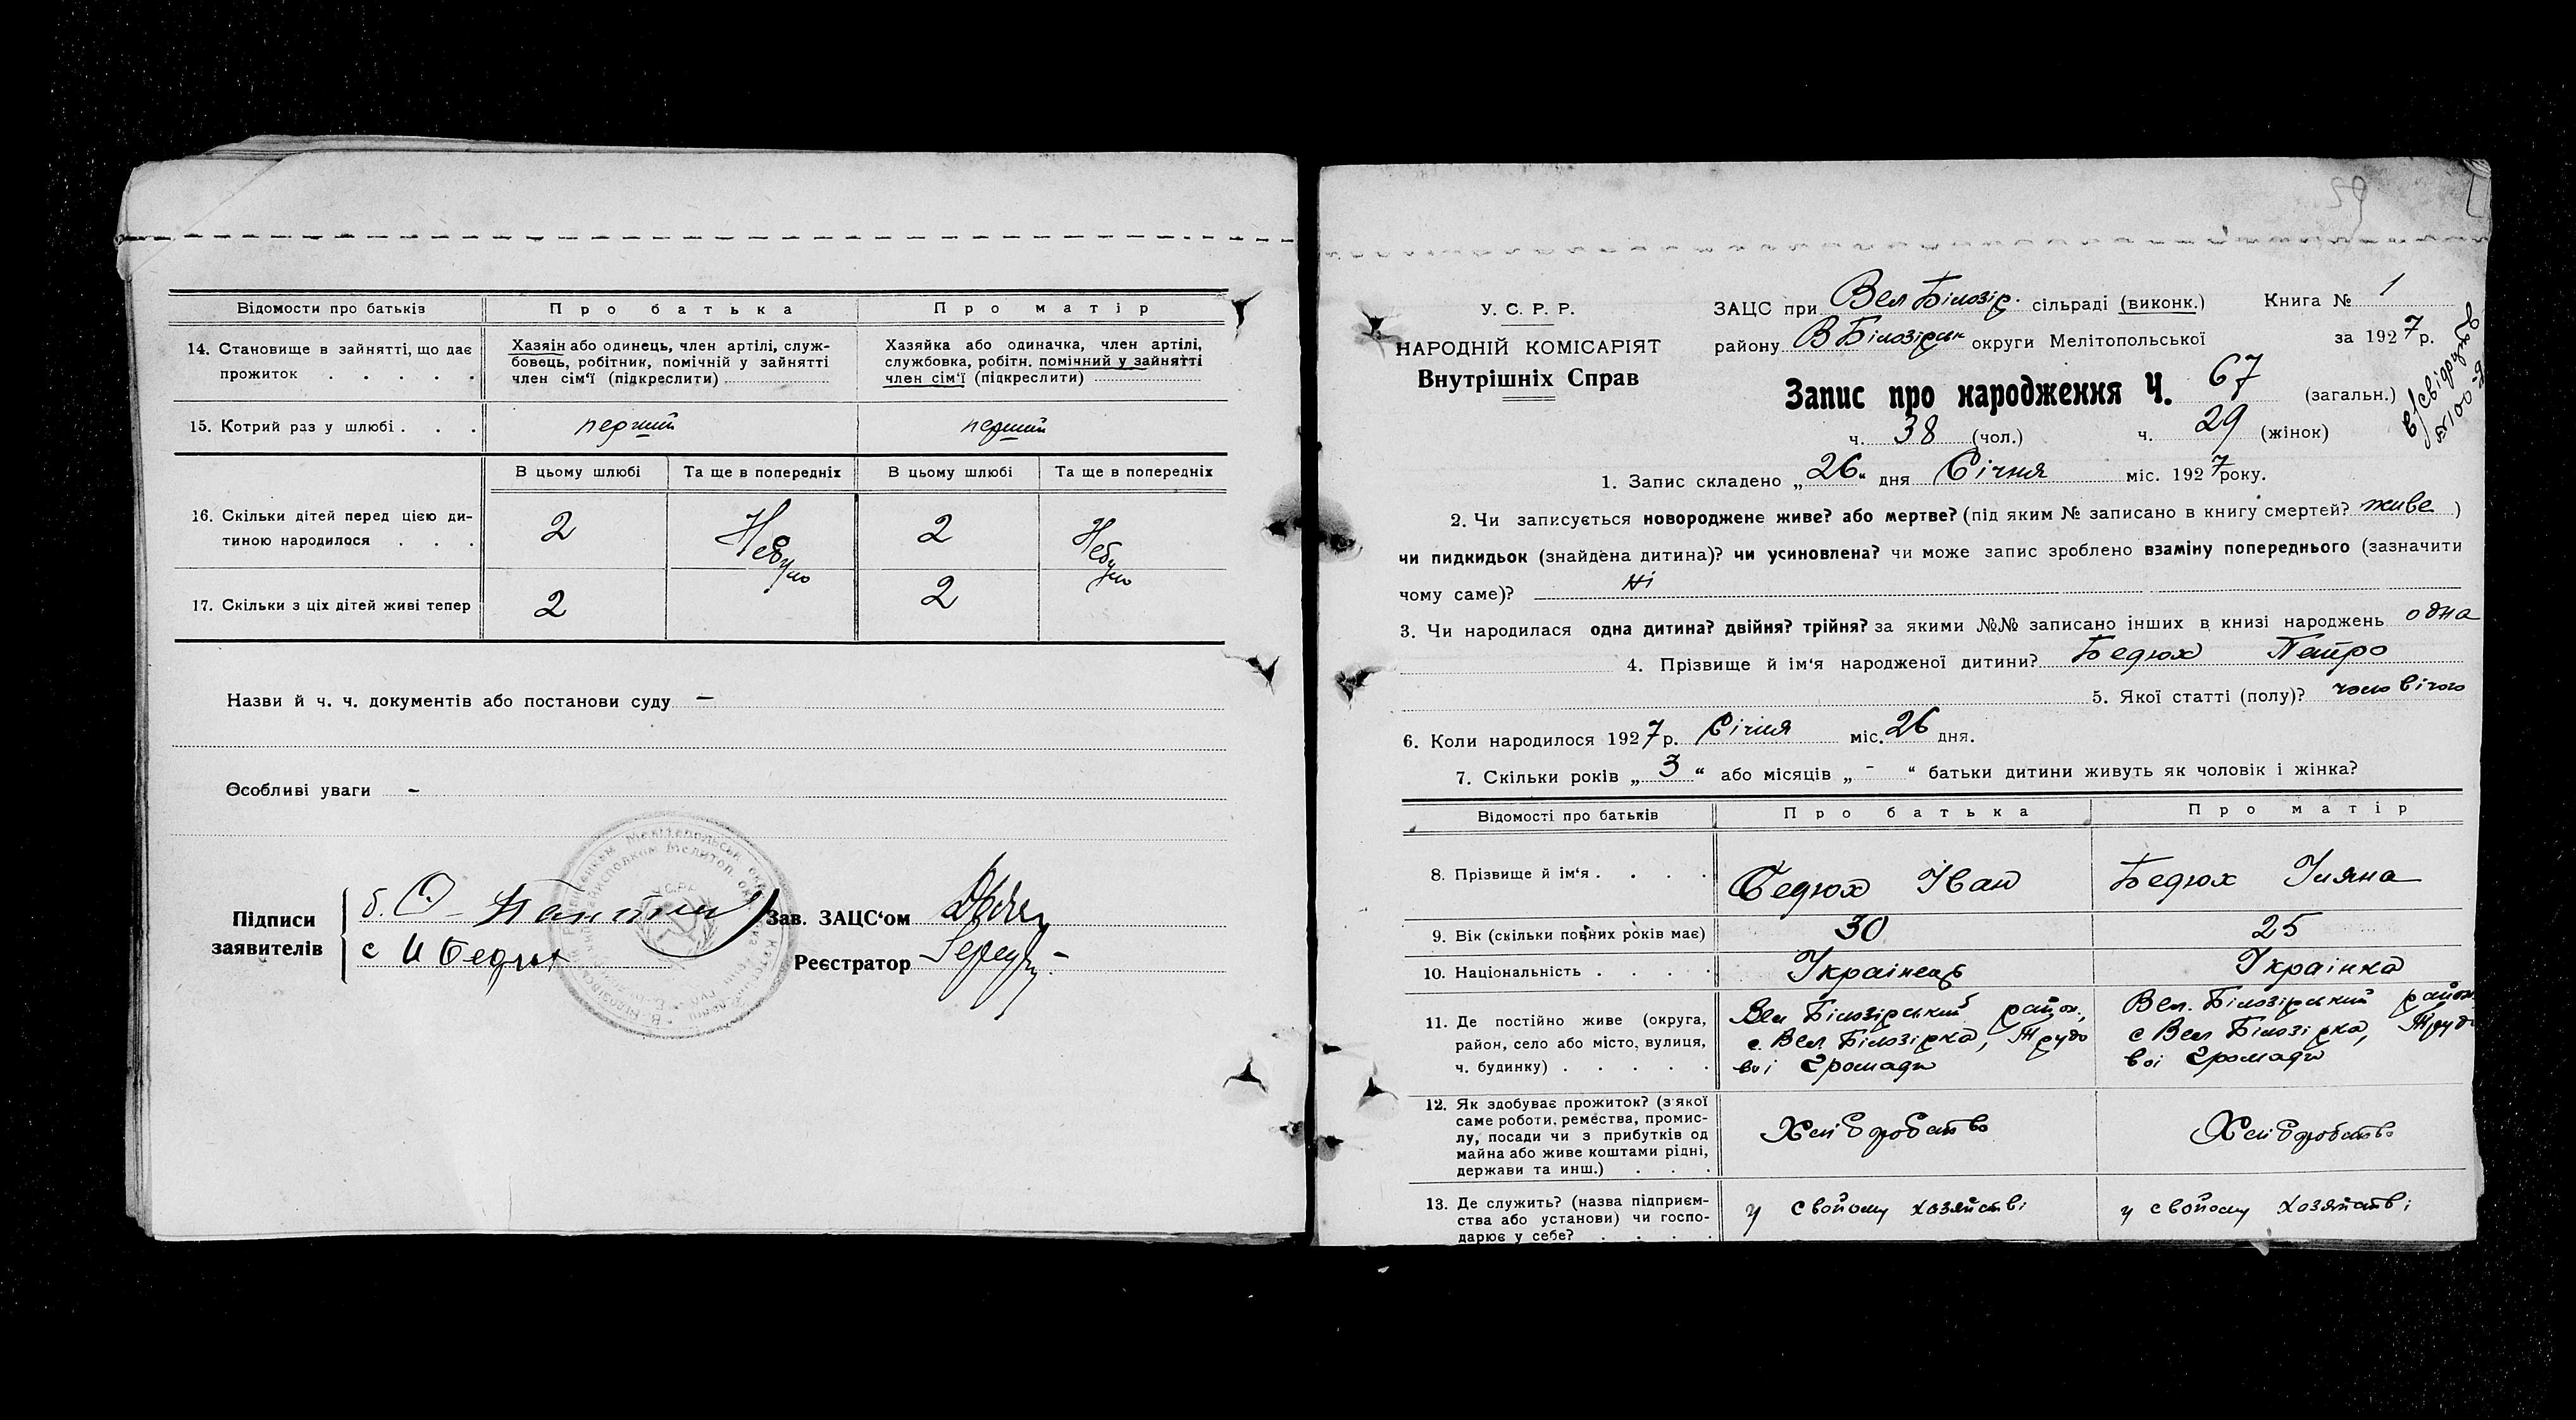 Відомости про батьків Про батька Про матір
14. Становище в зайнятті, що дає прожиток . . . . .
Хазяін або одинець, член артілі, служ-
бовець, робітник, помічній у зайнятті
член сім'ї (підкреслити)
Хазяйка або одиначка, член артілі,
службовка, робітн. помічний у зайнятті
член сім'ї (підкреслити)
15. Котрий раз у шлюбі . . . перший перший
В цьому шлюбі Та ще в попередніх В цьому шлюбі Та ще в попередніх
16. Скільки дітей перед цією ди-
тиною народилося . . . 2 Небуло 2 Небуло
17. Скільки з ціх дітей живі тепер 2 2
Назви й ч. ч. документів або постанови суду —
Особливі уваги —
Підписи
заявителів
с И Бедюх
Зав. ЗАЦС'ом
Реєстратор
У. С. Р. Р.
НАРОДНІЙ КОМІСАРІЯТ
Внутрішніх Справ
ЗАЦС при Вел Білозір. сільраді (виконк.) Книга № 1
району В Білозірськ округи Мелітопольської за 1927 р.
Запис про народження Ч. 67 (загальн.)
ч. 38 (чол.) ч. 29 (жінок)
1. Запис складено „26" дня Січня міс. 1927 року.
2. Чи записується новороджене живе? або мертве? (під яким № записано в книгу смертей? живе )
чи пидкидьок (знайдена дитина)? чи усиновлена? чи може запис зроблено взаміну попереднього (зазначити
чому саме)? Ні
3. Чи народилася одна дитина? двійня? трійня? за якими №№ записано інших в книзі народжень одна
4. Прізвище й ім'я народженої дитини? Бедюх Петро
5. Якої статті (полу)? чоловічого
6. Коли народилося 1927 р. Січня міс. 26 дня.
7. Скільки років „3" або місяців „-" батьки дитини живуть як чоловік і жінка?
Відомості про батьків Про батька Про матір
8. Прізвище й ім'я . . . . Бедюх Іван Бедюх Уляна
9. Вік (скільки повних років має) 30 25
10. Національність . . . . Українець Українка
11. Де постійно живе (округа,
район, село або місто, вулиця,
ч. будинку) . . . . .
Вел Білозірський район,
с. Вел Білозірка, Трудо
вої Громади
Вел. Білозірський район
с Вел Білозірка, Трудо
вої Громади
12. Як здобуває прожиток? (з якої
саме роботи, ремества, промис-
лу, посади чи з прибутків од
майна або живе коштами рідні,
держави та инш.) . . .
Хліборобство Хліборобство
13. Де служить? (назва підприєм-
ства або установи) чи госпо-
дарює у себе? . . . .
у свойому хозяйстві у свойому хозяйстві